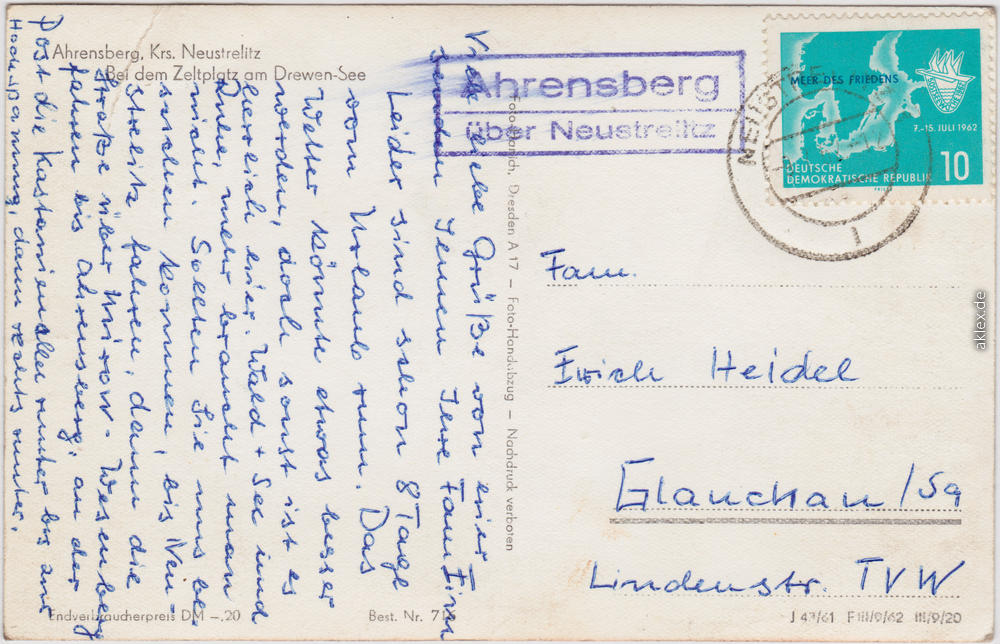 Ahrensberg, Krs. Neustrelitz
Bei dem Zeltplatz am Drewen-See
Ahrensberg
über Neustrelitz
MEER DES FRIEDENS
7.-15. JULI 1962
DEUTSCHE
DEMOKRATISCHE REPUBLIK
10
Viele liebe Grüße von hier
senden Ihnen Ihre Fam.
Leider sind schon 8 Tage
vom Urlaub rum. Das
Wetter könnte etwas besser
werden, doch sonst ist es
herrlich hier. Wald + See und
Ruhe, mehr braucht man
nicht. Sollten Sie uns be-
suchen kommen, bis Neu-
strelitz fahren, dann die
Straße über Mirow - Wesenberg
fahren bis Ahrensberg, an der
Post die Kastanienallee runter bis zur
dann rechts runter.
Dresden A 17 – Foto-Handabzug – Nachdruck verboten
Fam.
Erich Heidel
Glauchau/Sa
Lindenstr. TVW
Endverbraucherpreis DM -,20
Best. Nr. 71
J 47/61 F III/9/62 III/9/20
aklex.de